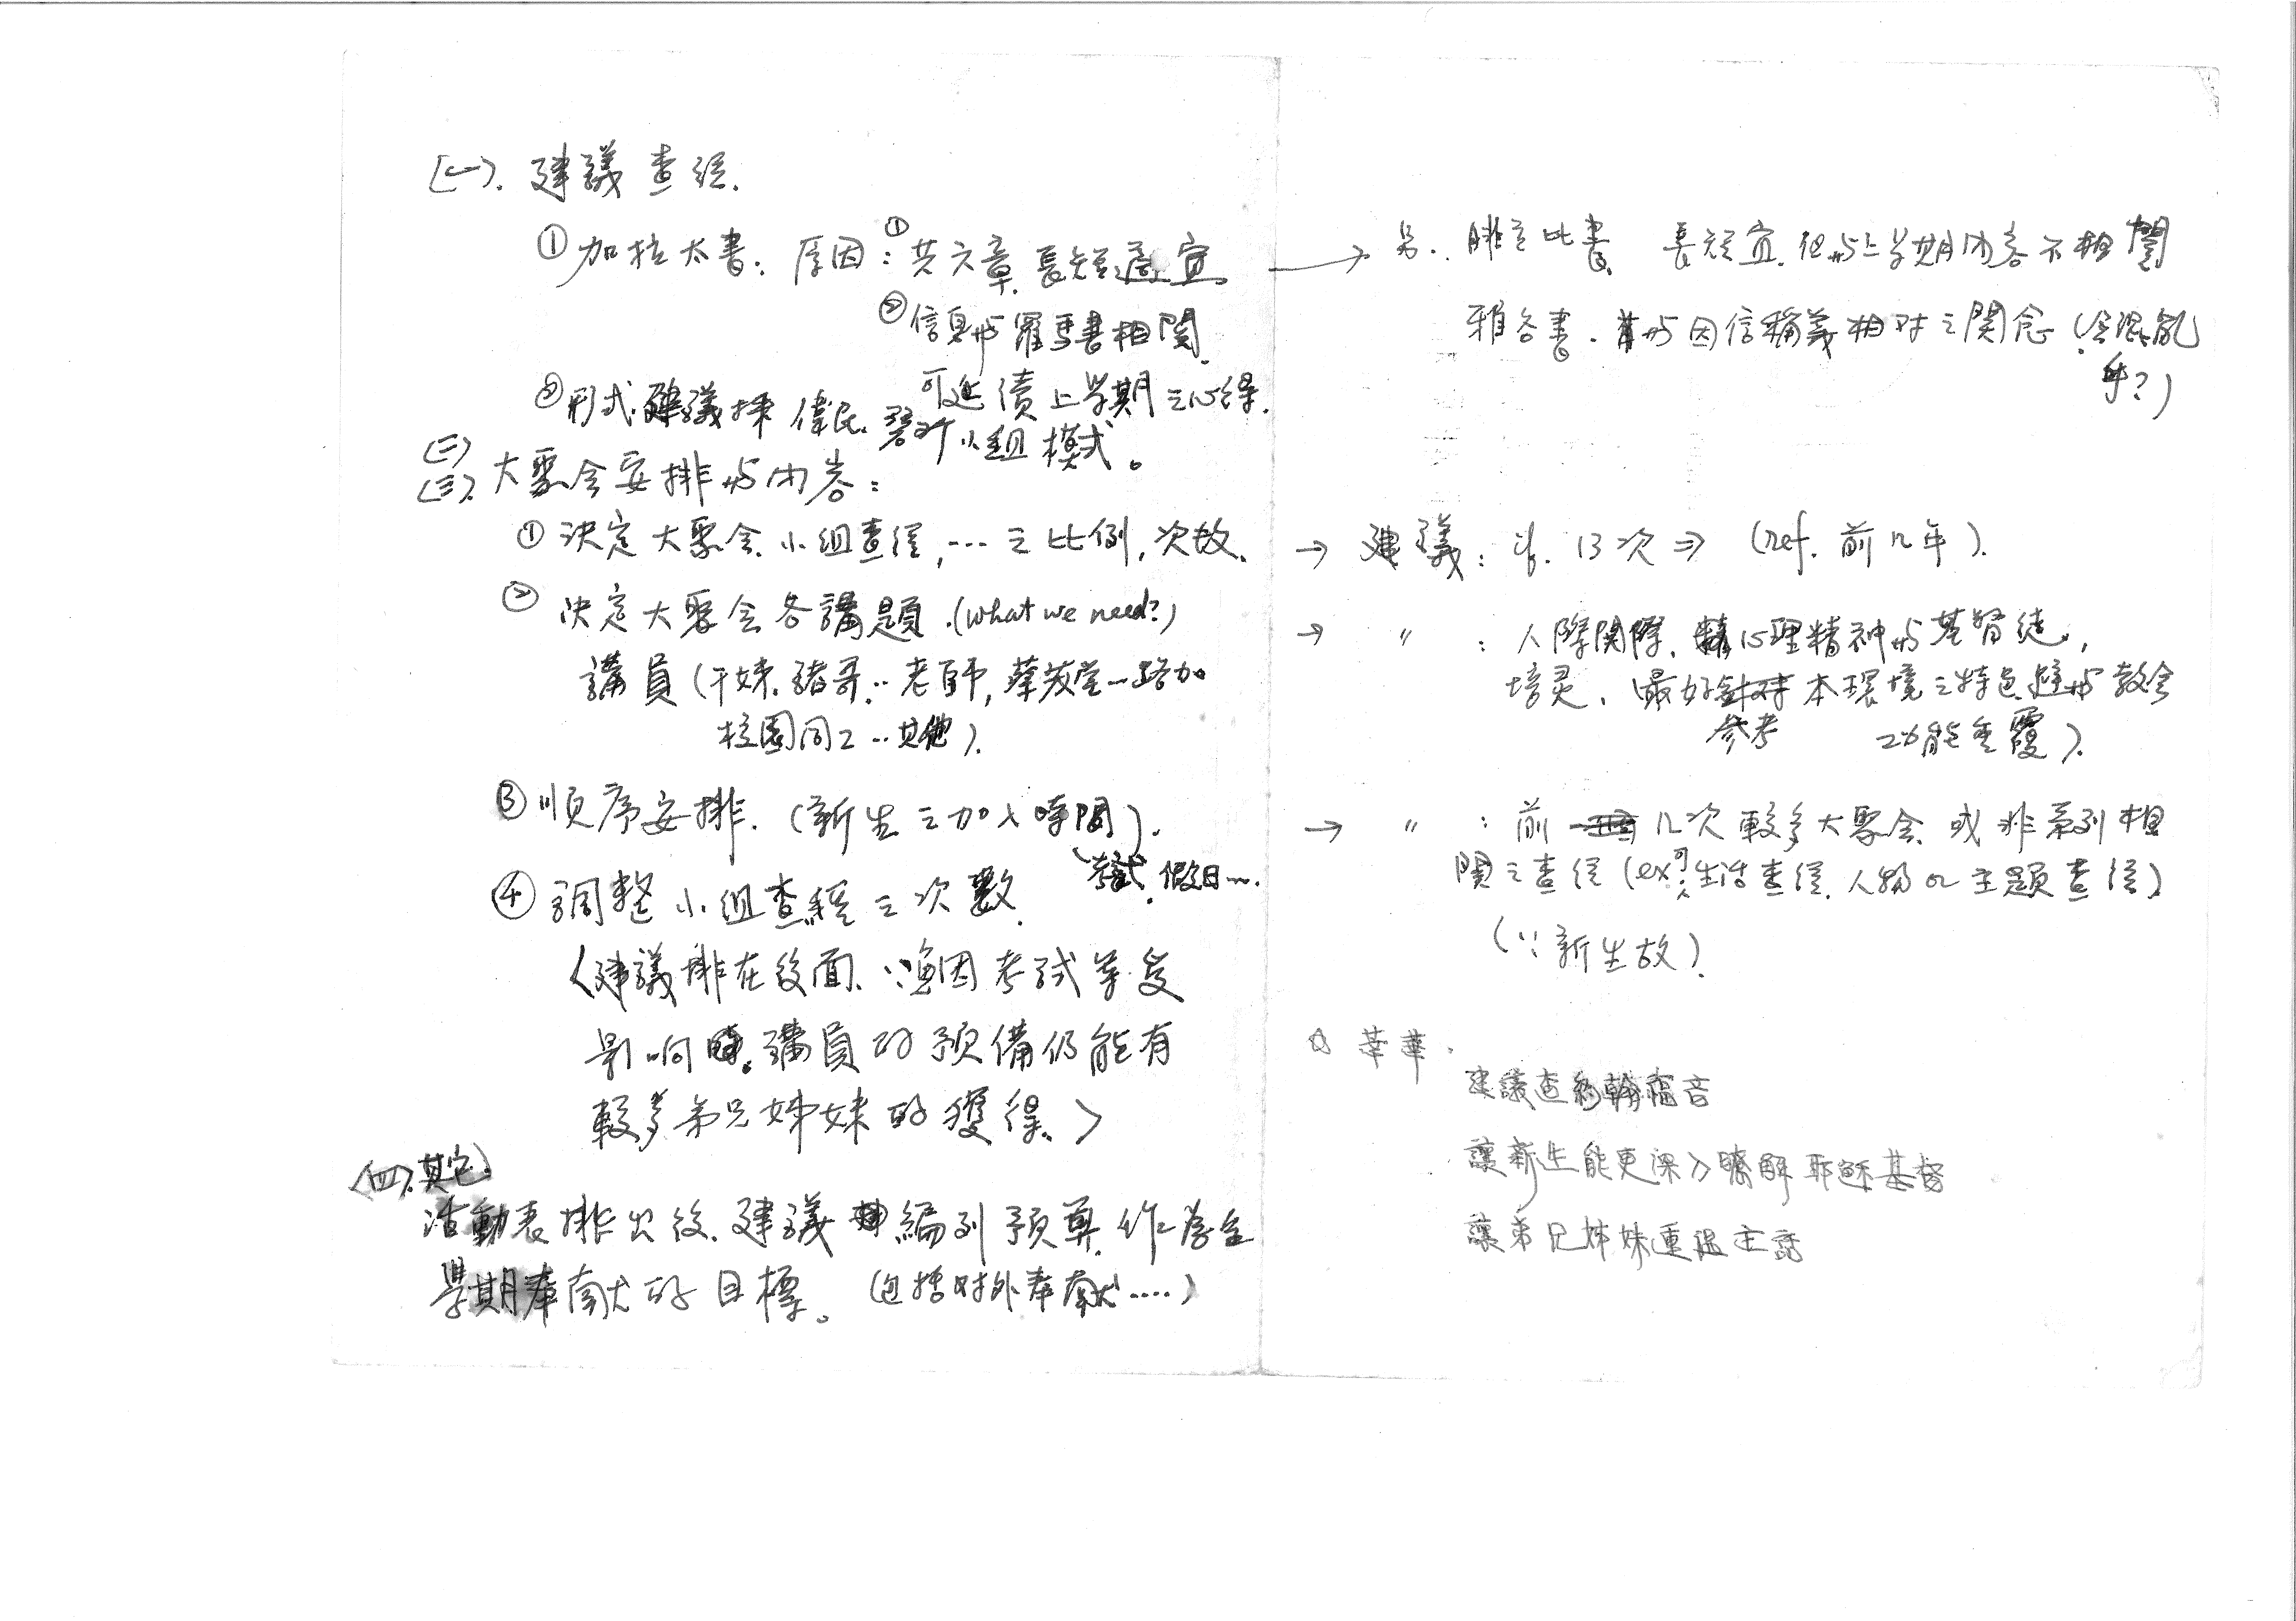 (一). 建議查經.
①加拉太書. 原因:①共六章.長短適宜.
②信息与羅馬書相關.
可延續上學期之心得.
②形式.建議採偉民. 小組模式。
(二)
(三). 大聚会安排与內容:
① 決定大聚会.小組查經,…之比例,次数.
② 決定大聚会各講題.(what we need?)
講員(干妹.豬哥..老師,蔡茂堂一路加
校園同工..其他).
③順序安排.(新生之加入時間).
考試.假日….
④調整小組查經之次數.
〈建議排在後面.∵漁因考試等受
影响時.講員的預備仍能有
較多弟兄姊妹的獲得.〉
(四).其它.
活動表排出後.建議編列預算.作為全
學期奉献的目標。(包括对外奉献….)
→ 另.. 腓立比書. 長短宜.但与上学期內容不相關
雅各書.与因信稱義相对之関念(会混亂
乎?)
→ 建議:if. 13次⇒ (ref. 前几年).
→ 〃 :人際関係.心理精神与基督徒,
培灵.最好針对本環境之特色.避与教会
參考 功能重覆).
→ 〃 :前几次較多大聚会.或非系列相
関之查經(ex:可生活查經.人物or主題查經)
(∵新生故).
☆ 華.
建議查約翰福音
讓新生能更深入瞭解耶穌基督
讓弟兄姊妹重溫主話